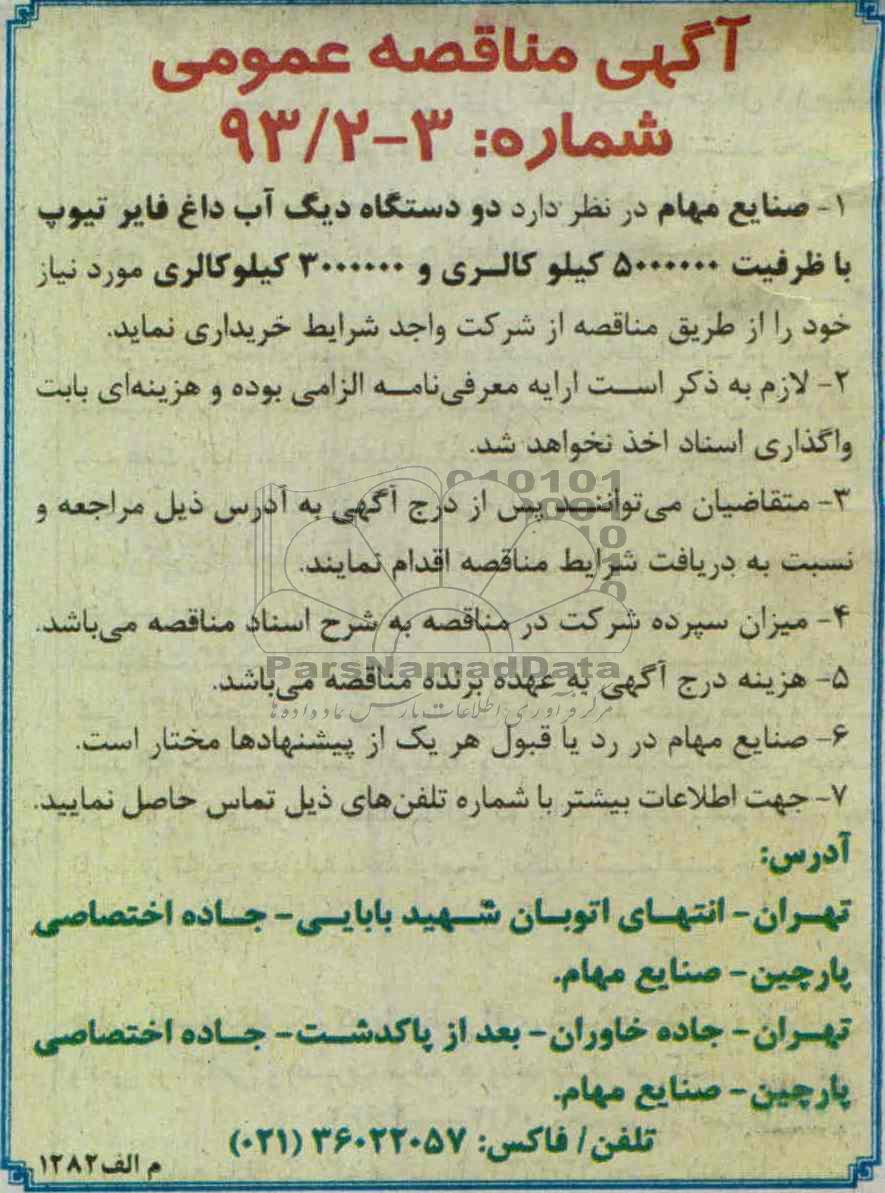 آگهی مناقصه عمومی
شماره: ۳-۹۳/۲
۱- صنایع مهام در نظر دارد دو دستگاه دیگ آب داغ فایر تیوپ
با ظرفیت ۵۰۰۰۰۰۰ کیلو کالری و ۳۰۰۰۰۰۰ کیلوکالری مورد نیاز
خود را از طریق مناقصه از شرکت واجد شرایط خریداری نماید.
۲- لازم به ذکر است ارایه معرفی‌نامه الزامی بوده و هزینه‌ای بابت
واگذاری اسناد اخذ نخواهد شد.
۳- متقاضیان می‌توانند پس از درج آگهی به آدرس ذیل مراجعه و
نسبت به دریافت شرایط مناقصه اقدام نمایند.
۴- میزان سپرده شرکت در مناقصه به شرح اسناد مناقصه می‌باشد.
ParsNamadData
۵- هزینه درج آگهی به عهده برنده مناقصه می‌باشد.
مرکز فرآوری اطلاعات پارس نماد داده‌ها
۶- صنایع مهام در رد یا قبول هر یک از پیشنهادها مختار است.
۷- جهت اطلاعات بیشتر با شماره تلفن‌های ذیل تماس حاصل نمایید.
آدرس:
تهران- انتهای اتوبان شهید بابایی- جاده اختصاصی
پارچین- صنایع مهام.
تهران- جاده خاوران- بعد از پاکدشت- جاده اختصاصی
پارچین- صنایع مهام.
تلفن/ فاکس: ۳۶۰۲۲۰۵۷ (۰۲۱)
م الف ۱۲۸۲